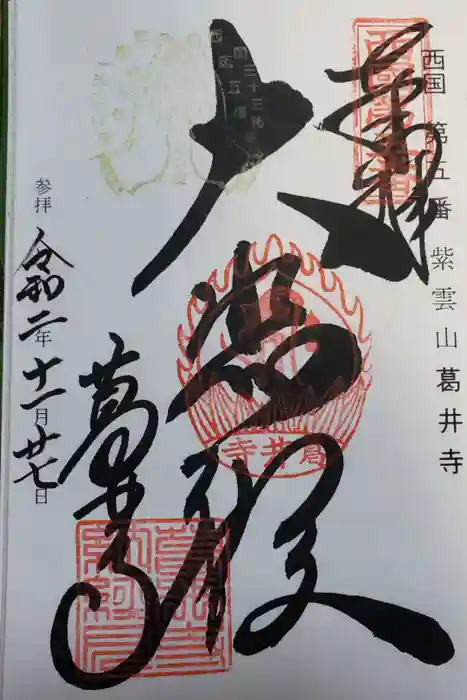 西国 第五番 紫雲山 葛井寺
奉拝
大悲殿
葛井寺
参拝 令和二年十一月廿七日
葛井寺